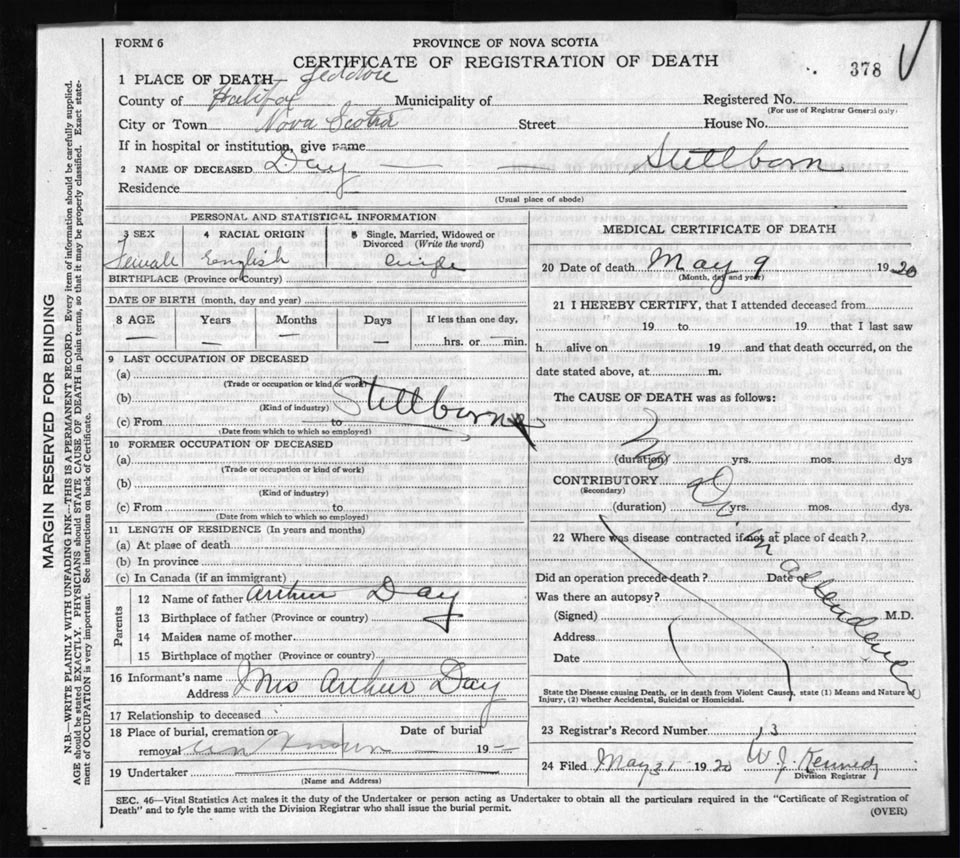 FORM 6
PROVINCE OF NOVA SCOTIA
CERTIFICATE OF REGISTRATION OF DEATH
378
1 PLACE OF DEATH— Jeddore
County of Halifax Municipality of Registered No.
(For use of Registrar General only)
City or Town Nova Scotia Street House No.
If in hospital or institution, give name
2 NAME OF DECEASED Day — — Stillborn
Residence
(Usual place of abode)
PERSONAL AND STATISTICAL INFORMATION
3 SEX 4 RACIAL ORIGIN 5 Single, Married, Widowed or Divorced (Write the word)
Female English Single
BIRTHPLACE (Province or Country)
DATE OF BIRTH (month, day and year)
8 AGE Years Months Days If less than one day,
— — — — hrs. or — min.
9 LAST OCCUPATION OF DECEASED
(a)
(Trade or occupation or kind of work)
(b) Stillborn
(Kind of industry)
(c) From to
(Date from which to which so employed)
10 FORMER OCCUPATION OF DECEASED
(a)
(Trade or occupation or kind of work)
(b)
(Kind of industry)
(c) From to
(Date from which to which so employed)
11 LENGTH OF RESIDENCE (In years and months)
(a) At place of death
(b) In province
(c) In Canada (if an immigrant)
Parents
12 Name of father Arthur Day
13 Birthplace of father (Province or country)
14 Maiden name of mother
15 Birthplace of mother (Province or country)
16 Informant's name Mrs Arthur Day
Address
17 Relationship to deceased
18 Place of burial, cremation or removal unknown Date of burial — 19 —
19 Undertaker
(Name and Address)
MEDICAL CERTIFICATE OF DEATH
20 Date of death May 9 1920
(Month, day and year)
21 I HEREBY CERTIFY, that I attended deceased from
19 to 19 that I last saw
h alive on 19 and that death occurred, on the
date stated above, at m.
The CAUSE OF DEATH was as follows:
No Dr in attendance
(duration) yrs. mos. dys
CONTRIBUTORY
(Secondary)
(duration) yrs. mos. dys.
22 Where was disease contracted if not at place of death?
Did an operation precede death? Date of
Was there an autopsy?
(Signed) M.D.
Address
Date
State the Disease causing Death, or in death from Violent Causes, state (1) Means and Nature of
Injury, (2) whether Accidental, Suicidal or Homicidal.
23 Registrar's Record Number 13
24 Filed May 31 1920 W. J. Kennedy
Division Registrar
SEC. 46—Vital Statistics Act makes it the duty of the Undertaker or person acting as Undertaker to obtain all the particulars required in the "Certificate of Registration of
Death" and to fyle the same with the Division Registrar who shall issue the burial permit.
(OVER)
MARGIN RESERVED FOR BINDING
N.B.—WRITE PLAINLY WITH UNFADING INK—THIS IS A PERMANENT RECORD. Every item of information should be carefully supplied.
AGE should be stated EXACTLY. PHYSICIANS should STATE CAUSE OF DEATH in plain terms, so that it may be properly classified. Exact statement of OCCUPATION is very important. See instructions on back of Certificate.